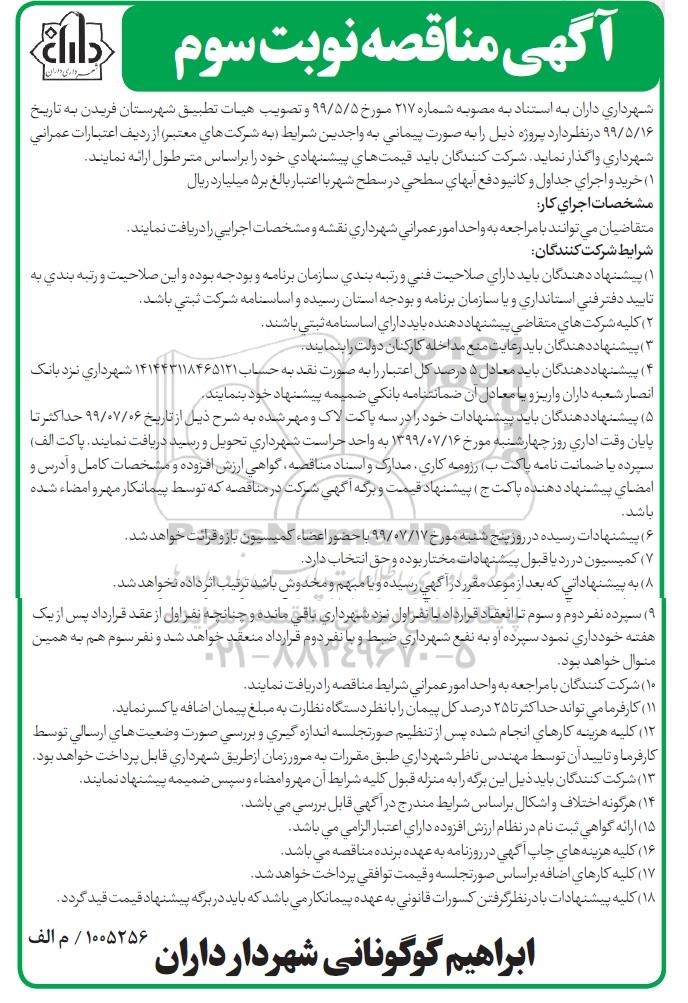 آگهی مناقصه نوبت سوم
داران
شهرداری داران
شهرداري داران به استناد به مصوبه شماره ۲۱۷ مورخ ۹۹/۵/۵ و تصویب هیات تطبیق شهرستان فریدن به تاریخ
۹۹/۵/۱۶ در نظر دارد پروژه ذیل را به صورت پیماني به واجدین شرایط (به شرکت‌هاي معتبر) از ردیف اعتبارات عمراني
شهرداري واگذار نماید. شرکت کنندگان باید قیمت‌هاي پیشنهادي خود را براساس متر طول ارائه نمایند.
۱) خرید و اجراي جداول و کانیو دفع آبهاي سطحي در سطح شهر با اعتبار بالغ بر ۵ میلیارد ریال
مشخصات اجراي کار:
متقاضیان مي‌توانند با مراجعه به واحد امور عمراني شهرداري نقشه و مشخصات اجرایي را دریافت نمایند.
شرایط شرکت کنندگان:
۱) پیشنهاد دهندگان باید داراي صلاحیت فني و رتبه بندي سازمان برنامه و بودجه بوده و این صلاحیت و رتبه بندي به
تایید دفتر فني استانداري و یا سازمان برنامه و بودجه استان رسیده و اساسنامه شرکت ثبتي باشد.
۲) کلیه شرکت هاي متقاضي پیشنهاد دهنده باید داراي اساسنامه ثبتي باشند.
۳) پیشنهاد دهندگان باید رعایت منع مداخله کارکنان دولت را بنمایند.
۴) پیشنهاد دهندگان باید معادل ۵ درصد کل اعتبار را به صورت نقد به حساب ۱۴۱۴۴۳۱۱۸۴۶۵۱۲۱ شهرداري نزد بانک
انصار شعبه داران واریز و یا معادل آن ضمانتنامه بانکي ضمیمه پیشنهاد خود بنمایند.
۵) پیشنهاد دهندگان باید پیشنهادات خود را در سه پاکت لاک و مهر شده به شرح ذیل از تاریخ ۹۹/۰۷/۰۶ حداکثر تا
پایان وقت اداري روز چهارشنبه مورخ ۱۳۹۹/۰۷/۱۶ به واحد حراست شهرداري تحویل و رسید دریافت نمایند. پاکت الف)
سپرده یا ضمانت نامه پاکت ب) رزومه کاري، مدارک و اسناد مناقصه، گواهي ارزش افزوده و مشخصات کامل و آدرس و
امضاي پیشنهاد دهنده پاکت ج) پیشنهاد قیمت و برگه آگهي شرکت در مناقصه که توسط پیمانکار مهر و امضاء شده
باشد.
۶) پیشنهادات رسیده در روز پنج شنبه مورخ ۹۹/۰۷/۱۷ با حضور اعضاء کمیسیون باز و قرائت خواهد شد.
۷) کمیسیون در رد یا قبول پیشنهادات مختار بوده و حق انتخاب دارد.
۸) به پیشنهاداتي که بعد از موعد مقرر در آگهي رسیده و یا مبهم و مخدوش باشد ترتیب اثر داده نخواهد شد.
۹) سپرده نفر دوم و سوم تا انعقاد قرارداد با نفر اول نزد شهرداري باقي مانده و چنانچه نفر اول از عقد قرارداد پس از یک
هفته خودداري نمود سپرده او به نفع شهرداري ضبط و با نفر دوم قرارداد منعقد خواهد شد و نفر سوم هم به همین
منوال خواهد بود.
۱۰) شرکت کنندگان با مراجعه به واحد امور عمراني شرایط مناقصه را دریافت نمایند.
۱۱) کارفرما مي تواند حداکثر تا ۲۵ درصد کل پیمان را با نظر دستگاه نظارت به مبلغ پیمان اضافه یا کسر نماید.
۱۲) کلیه هزینه کارهاي انجام شده پس از تنظیم صورتجلسه اندازه گیري و بررسي صورت وضعیت‌هاي ارسالي توسط
کارفرما و تایید آن توسط مهندس ناظر شهرداري طبق مقررات به مرور زمان از طریق شهرداري قابل پرداخت خواهد بود.
۱۳) شرکت کنندگان باید ذیل این برگه را به منزله قبول کلیه شرایط آن مهر و امضاء و سپس ضمیمه پیشنهاد نمایند.
۱۴) هرگونه اختلاف و اشکال براساس شرایط مندرج در آگهي قابل بررسي مي باشد.
۱۵) ارائه گواهي ثبت نام در نظام ارزش افزوده داراي اعتبار الزامي مي باشد.
۱۶) کلیه هزینه‌هاي چاپ آگهي در روزنامه به عهده برنده مناقصه مي باشد.
۱۷) کلیه کارهاي اضافه براساس صورتجلسه و قیمت توافقي پرداخت خواهد شد.
۱۸) کلیه پیشنهادات با در نظر گرفتن کسورات قانوني به عهده پیمانکار مي باشد که باید در برگه پیشنهاد قیمت قید گردد.
۱۰۰۵۲۵۶ / م الف
ابراهیم گوگونانی شهردار داران
ParsNamadData
۰۲۱-۸۸۳۴۹۶۷۰-۵